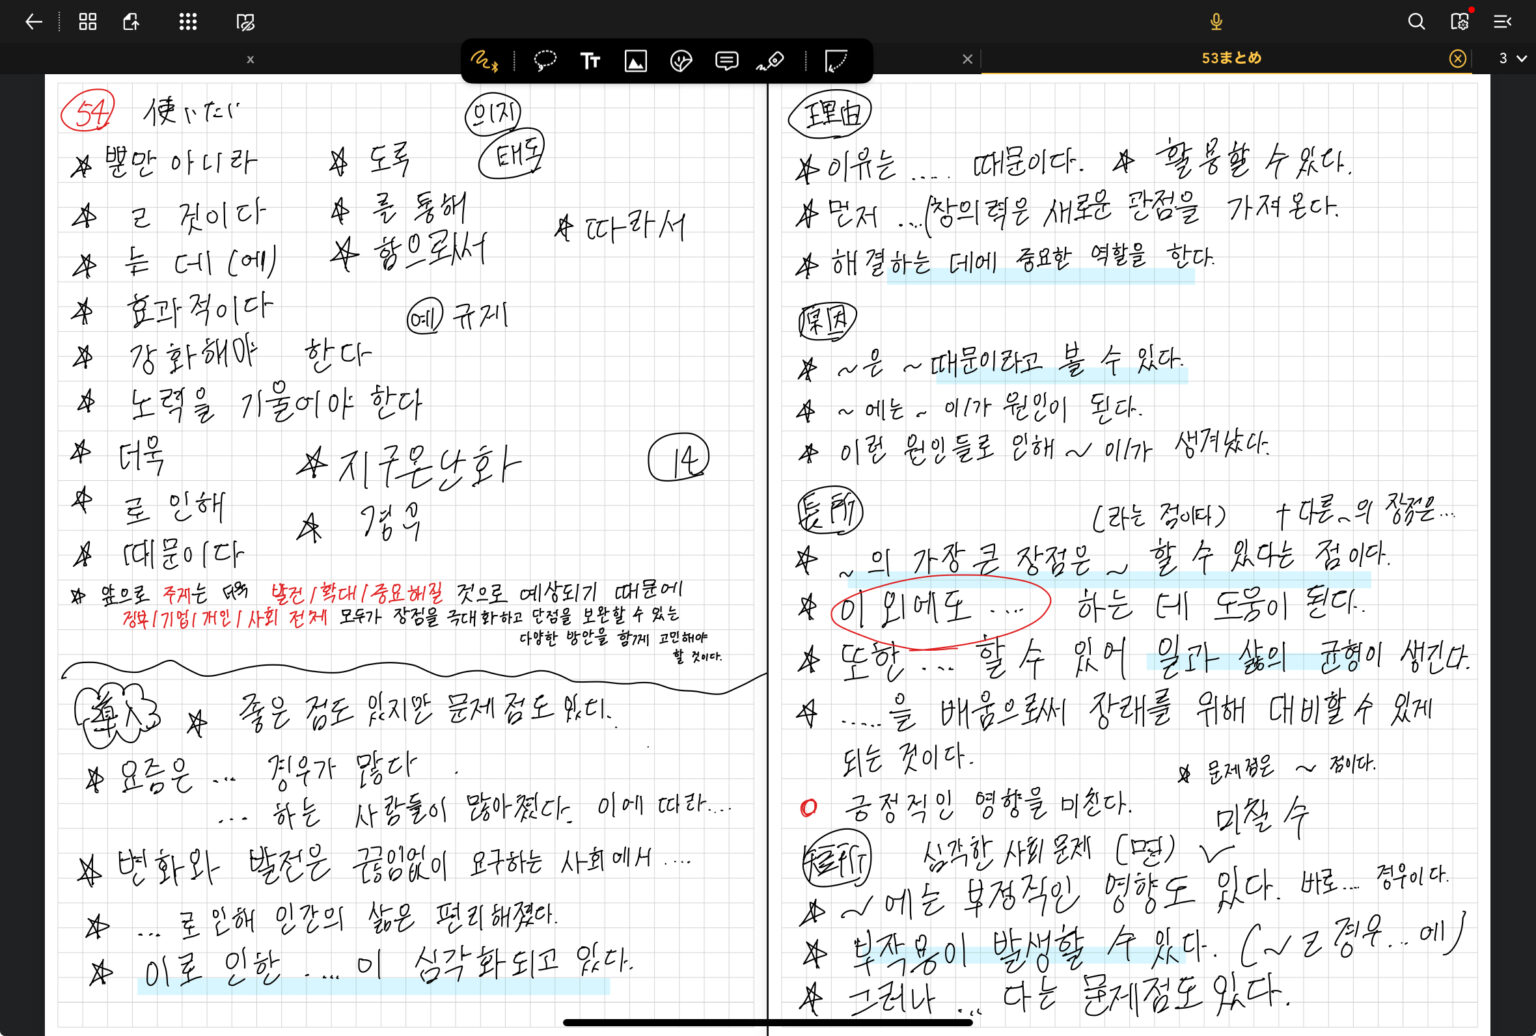 53まとめ
3
54 使いたい
의지
태도
☆ 뿐만 아니라
☆ 도록
☆ ㄹ 것이다
☆ 를 통해
☆ 따라서
☆ 는 데(에)
☆ 함으로써
☆ 효과적이다
예 규제
☆ 강화해야 한다
☆ 노력을 기울여야 한다
☆ 더욱
☆ 지구온난화
14
☆ 로 인해
☆ 때문이다
☆ 앞으로 주제는 더욱 발전/확대/중요해질 것으로 예상되기 때문에
정부/기업/개인/사회 전체 모두가 장점을 극대화하고 단점을 보완할 수 있는
다양한 방안을 함께 고민해야
할 것이다.
導入
☆ 좋은 점도 있지만 문제점도 있다.
☆ 요즘은 ... 경우가 많다.
... 하는 사람들이 많아졌다. 이에 따라....
☆ 변화와 발전은 끊임없이 요구하는 사회에서 ....
☆ ... 로 인해 인간의 삶은 편리해졌다.
☆ 이로 인한 .... 이 심각화되고 있다.
理由
☆ 이유는 .... 때문이다.
☆ 활용할 수 있다.
☆ 먼저 ...(창의력은 새로운 관점을 가져온다.
☆ 해결하는 데에 중요한 역할을 한다.
原因
☆ ~은 ~때문이라고 볼 수 있다.
☆ ~에는 ~ 이/가 원인이 된다.
☆ 이런 원인들로 인해 ~ 이/가 생겨났다.
長所
(라는 점이다)
+ 다른 ~의 장점은...
☆ ~의 가장 큰 장점은 ~ 할 수 있다는 점이다.
☆ 이 외에도 .... 하는 데 도움이 된다..
☆ 또한 ... 할 수 있어 일과 삶의 균형이 생긴다.
☆ .....을 배움으로써 장래를 위해 대비할 수 있게
되는 것이다.
☆ 문제점은 ~ 점이다.
긍정적인 영향을 미친다.
미칠 수
短所
심각한 사회 문제 (면)
☆ ~에는 부정적인 영향도 있다.
바로.... 경우이다.
☆ 부작용이 발생할 수 있다. (~ㄹ 경우...에)
☆ 그러나 ... 다는 문제점도 있다.